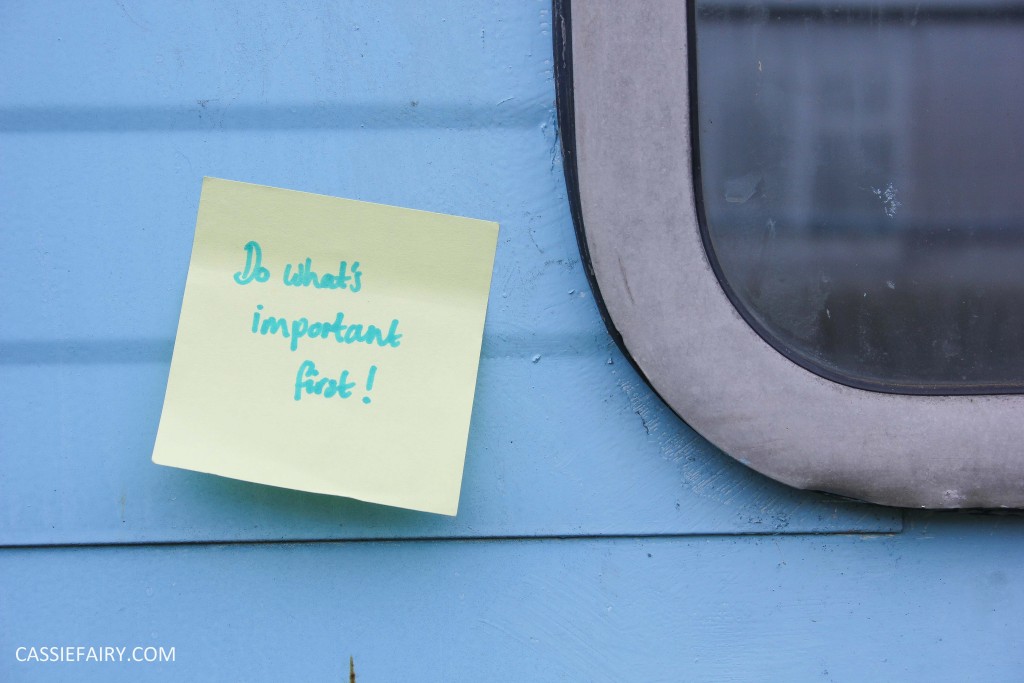 Do what's
important
first!
CASSIEFAIRY.COM